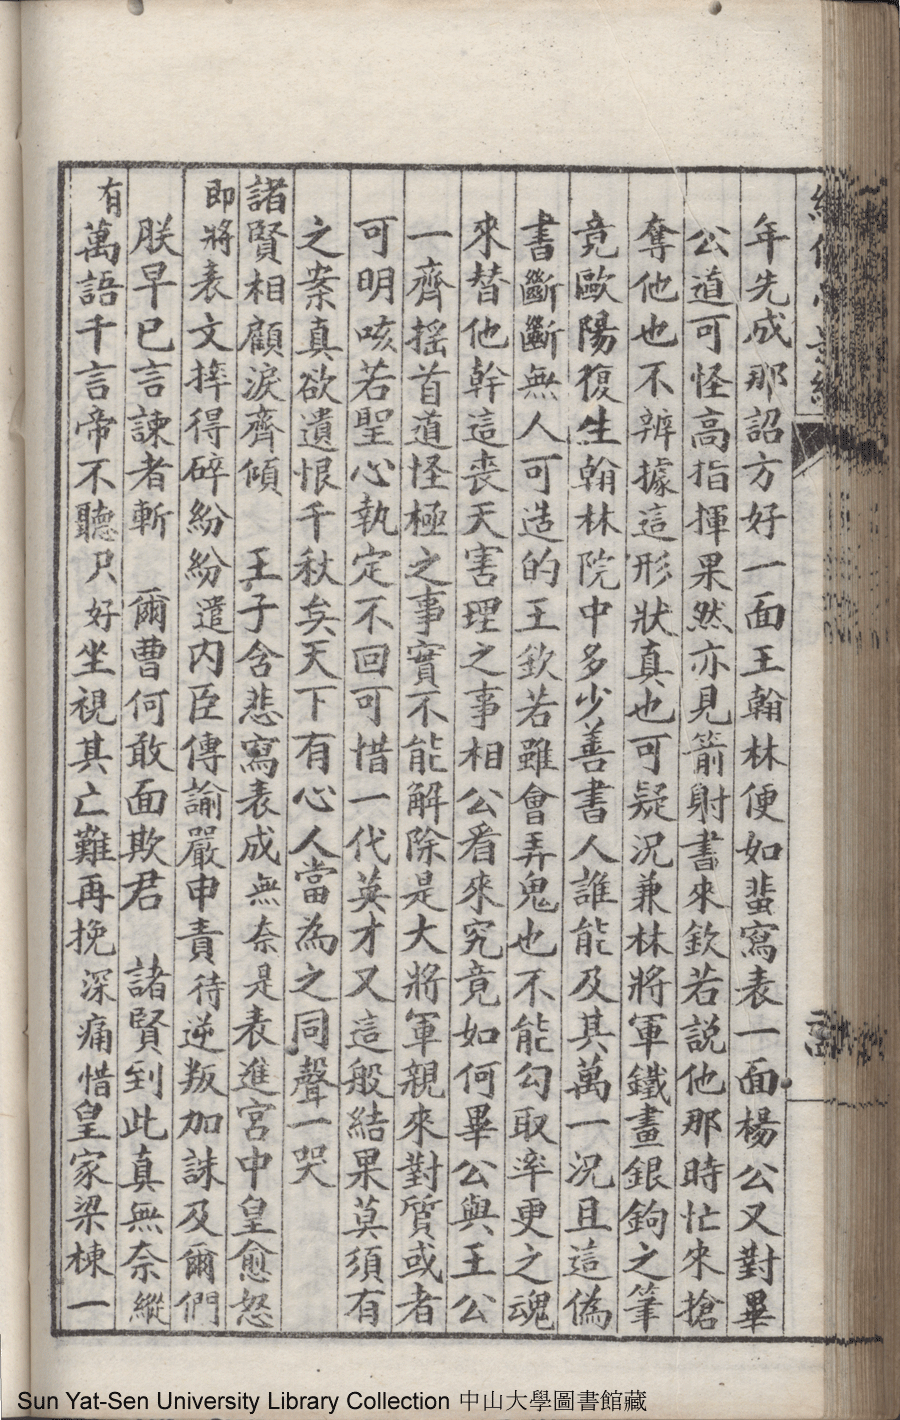 年先成那詔方好一面王翰林便如蜚寫表一面楊公又對畢
公道可怪高指揮果然亦見箭射書來欽若說他那時忙來搶
奪他也不辨據這形狀真也可疑況兼林將軍鐵畫銀鉤之筆
竟歐陽復生翰林院中多少善書人誰能及其萬一況且這偽
書斷斷無人可造的王欽若雖會弄鬼也不能勾取率更之魂
來替他幹這喪天害理之事相公看來究竟如何畢公與王公
一齊搖首道怪極之事實不能解除是大將軍親來對質或者
可明咳若聖心執定不回可惜一代英才又這般結果莫須有
之案真欲遺恨千秋矣天下有心人當為之同聲一哭
諸賢相顧淚齊傾　王子含悲寫表成無奈是表進宮中皇愈怒
即將表文摔得碎紛紛遣內臣傳諭嚴申責待逆叛加誅及爾們
朕早已言諫者斬　爾曹何敢面欺君　諸賢到此真無奈縱
有萬語千言帝不聽只好坐視其亡難再挽深痛惜皇家梁棟一
Sun Yat-Sen University Library Collection 中山大學圖書館藏